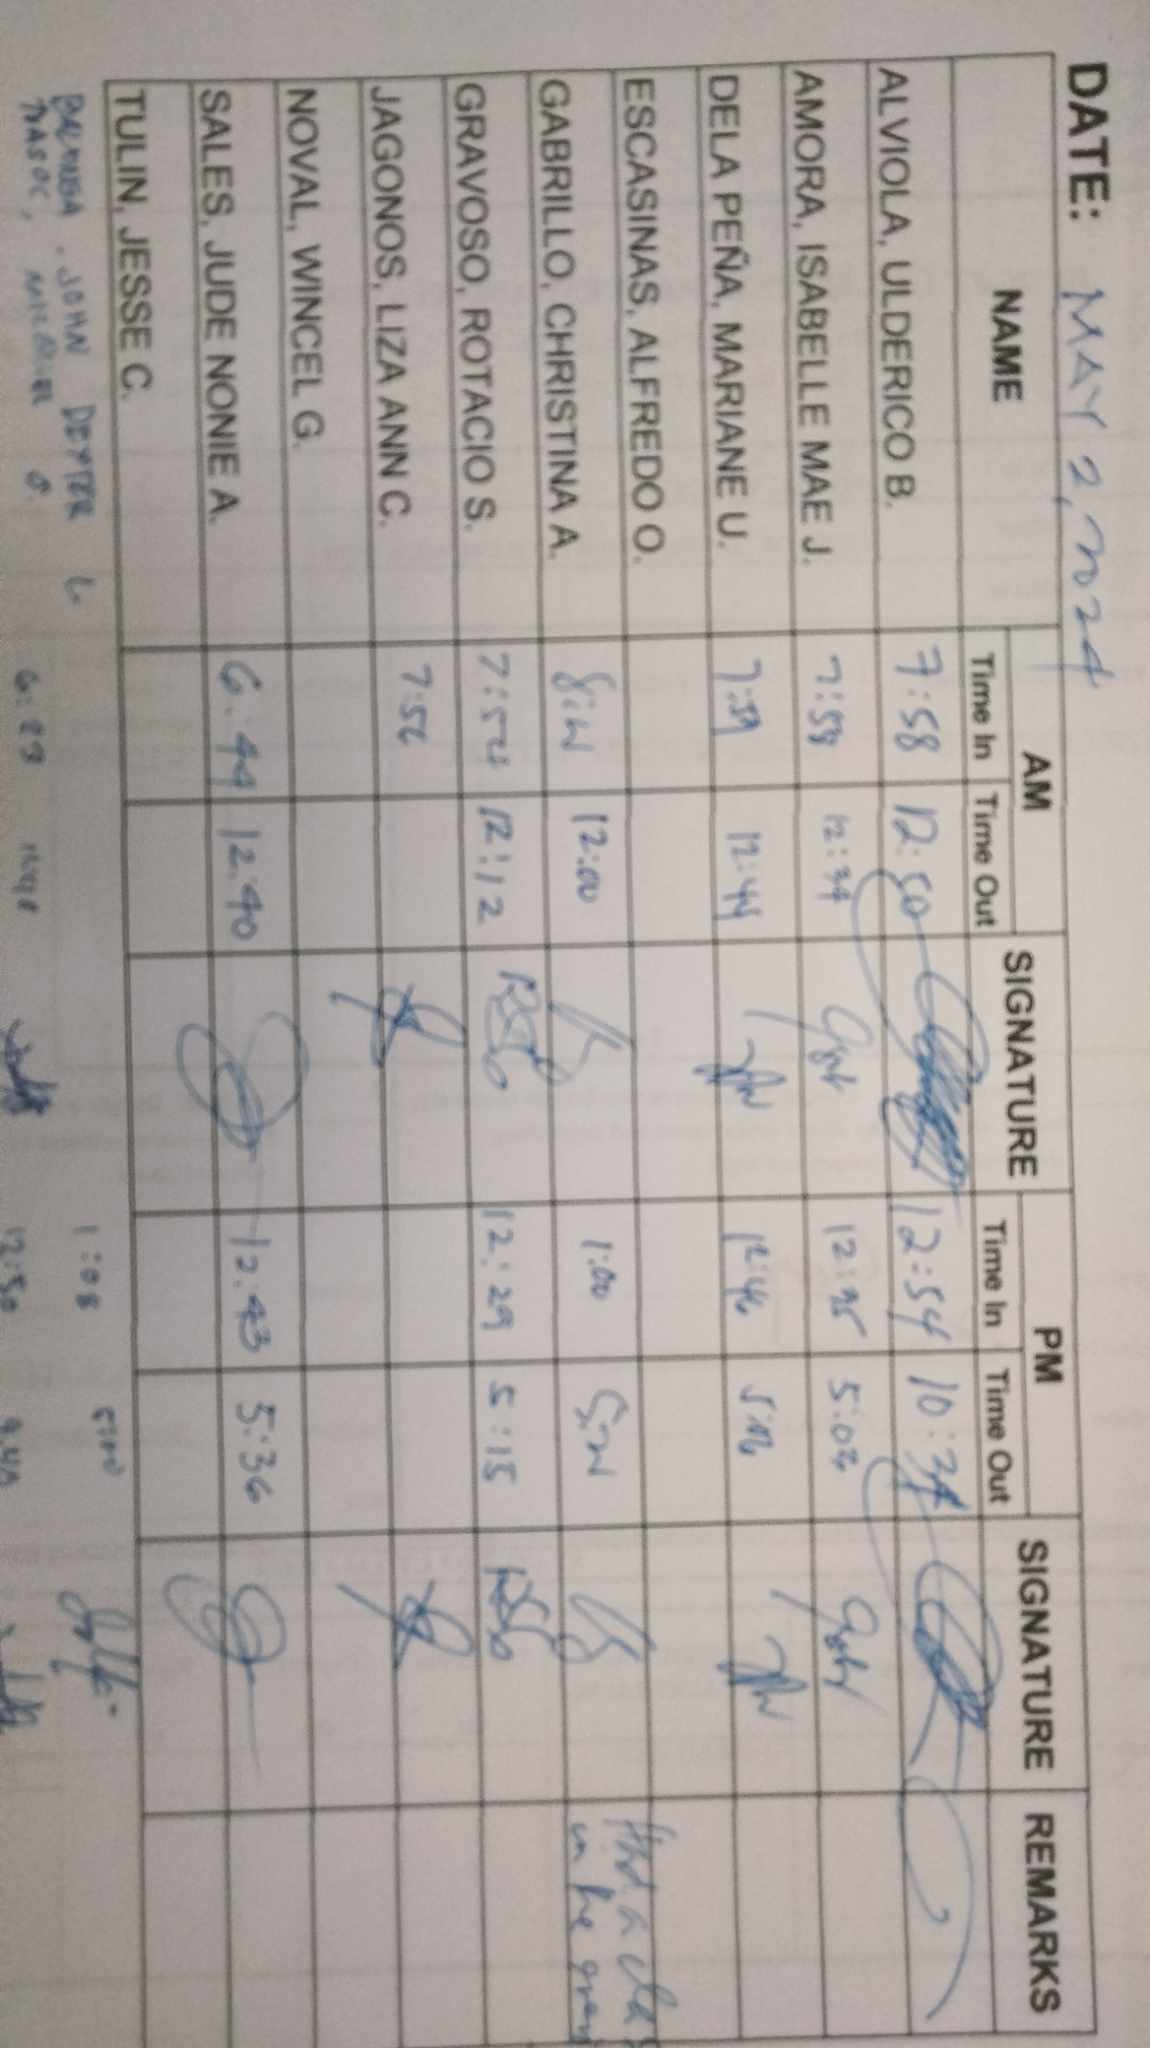 DATE: MAY 2, 2024
NAME AM SIGNATURE PM SIGNATURE REMARKS
Time In Time Out Time In Time Out
ALVIOLA, ULDERICO B. 7:58 12:50 12:54 10:34
AMORA, ISABELLE MAE J. 7:58 12:34 12:35 5:03
DELA PEÑA, MARIANE U. 7:59 12:44 12:46 5:06
ESCASINAS, ALFREDO O.
GABRILLO, CHRISTINA A. 8:00 12:00 1:00 5:00 Had a class
in the
GRAVOSO, ROTACIO S. 7:54 12:12 12:29 5:15
JAGONOS, LIZA ANN C. 7:56
NOVAL, WINCEL G.
SALES, JUDE NONIE A. 6:44 12:40 12:43 5:36
TULIN, JESSE C.
JOHN DEXTER L 1:08 5:00
6:23 12:50